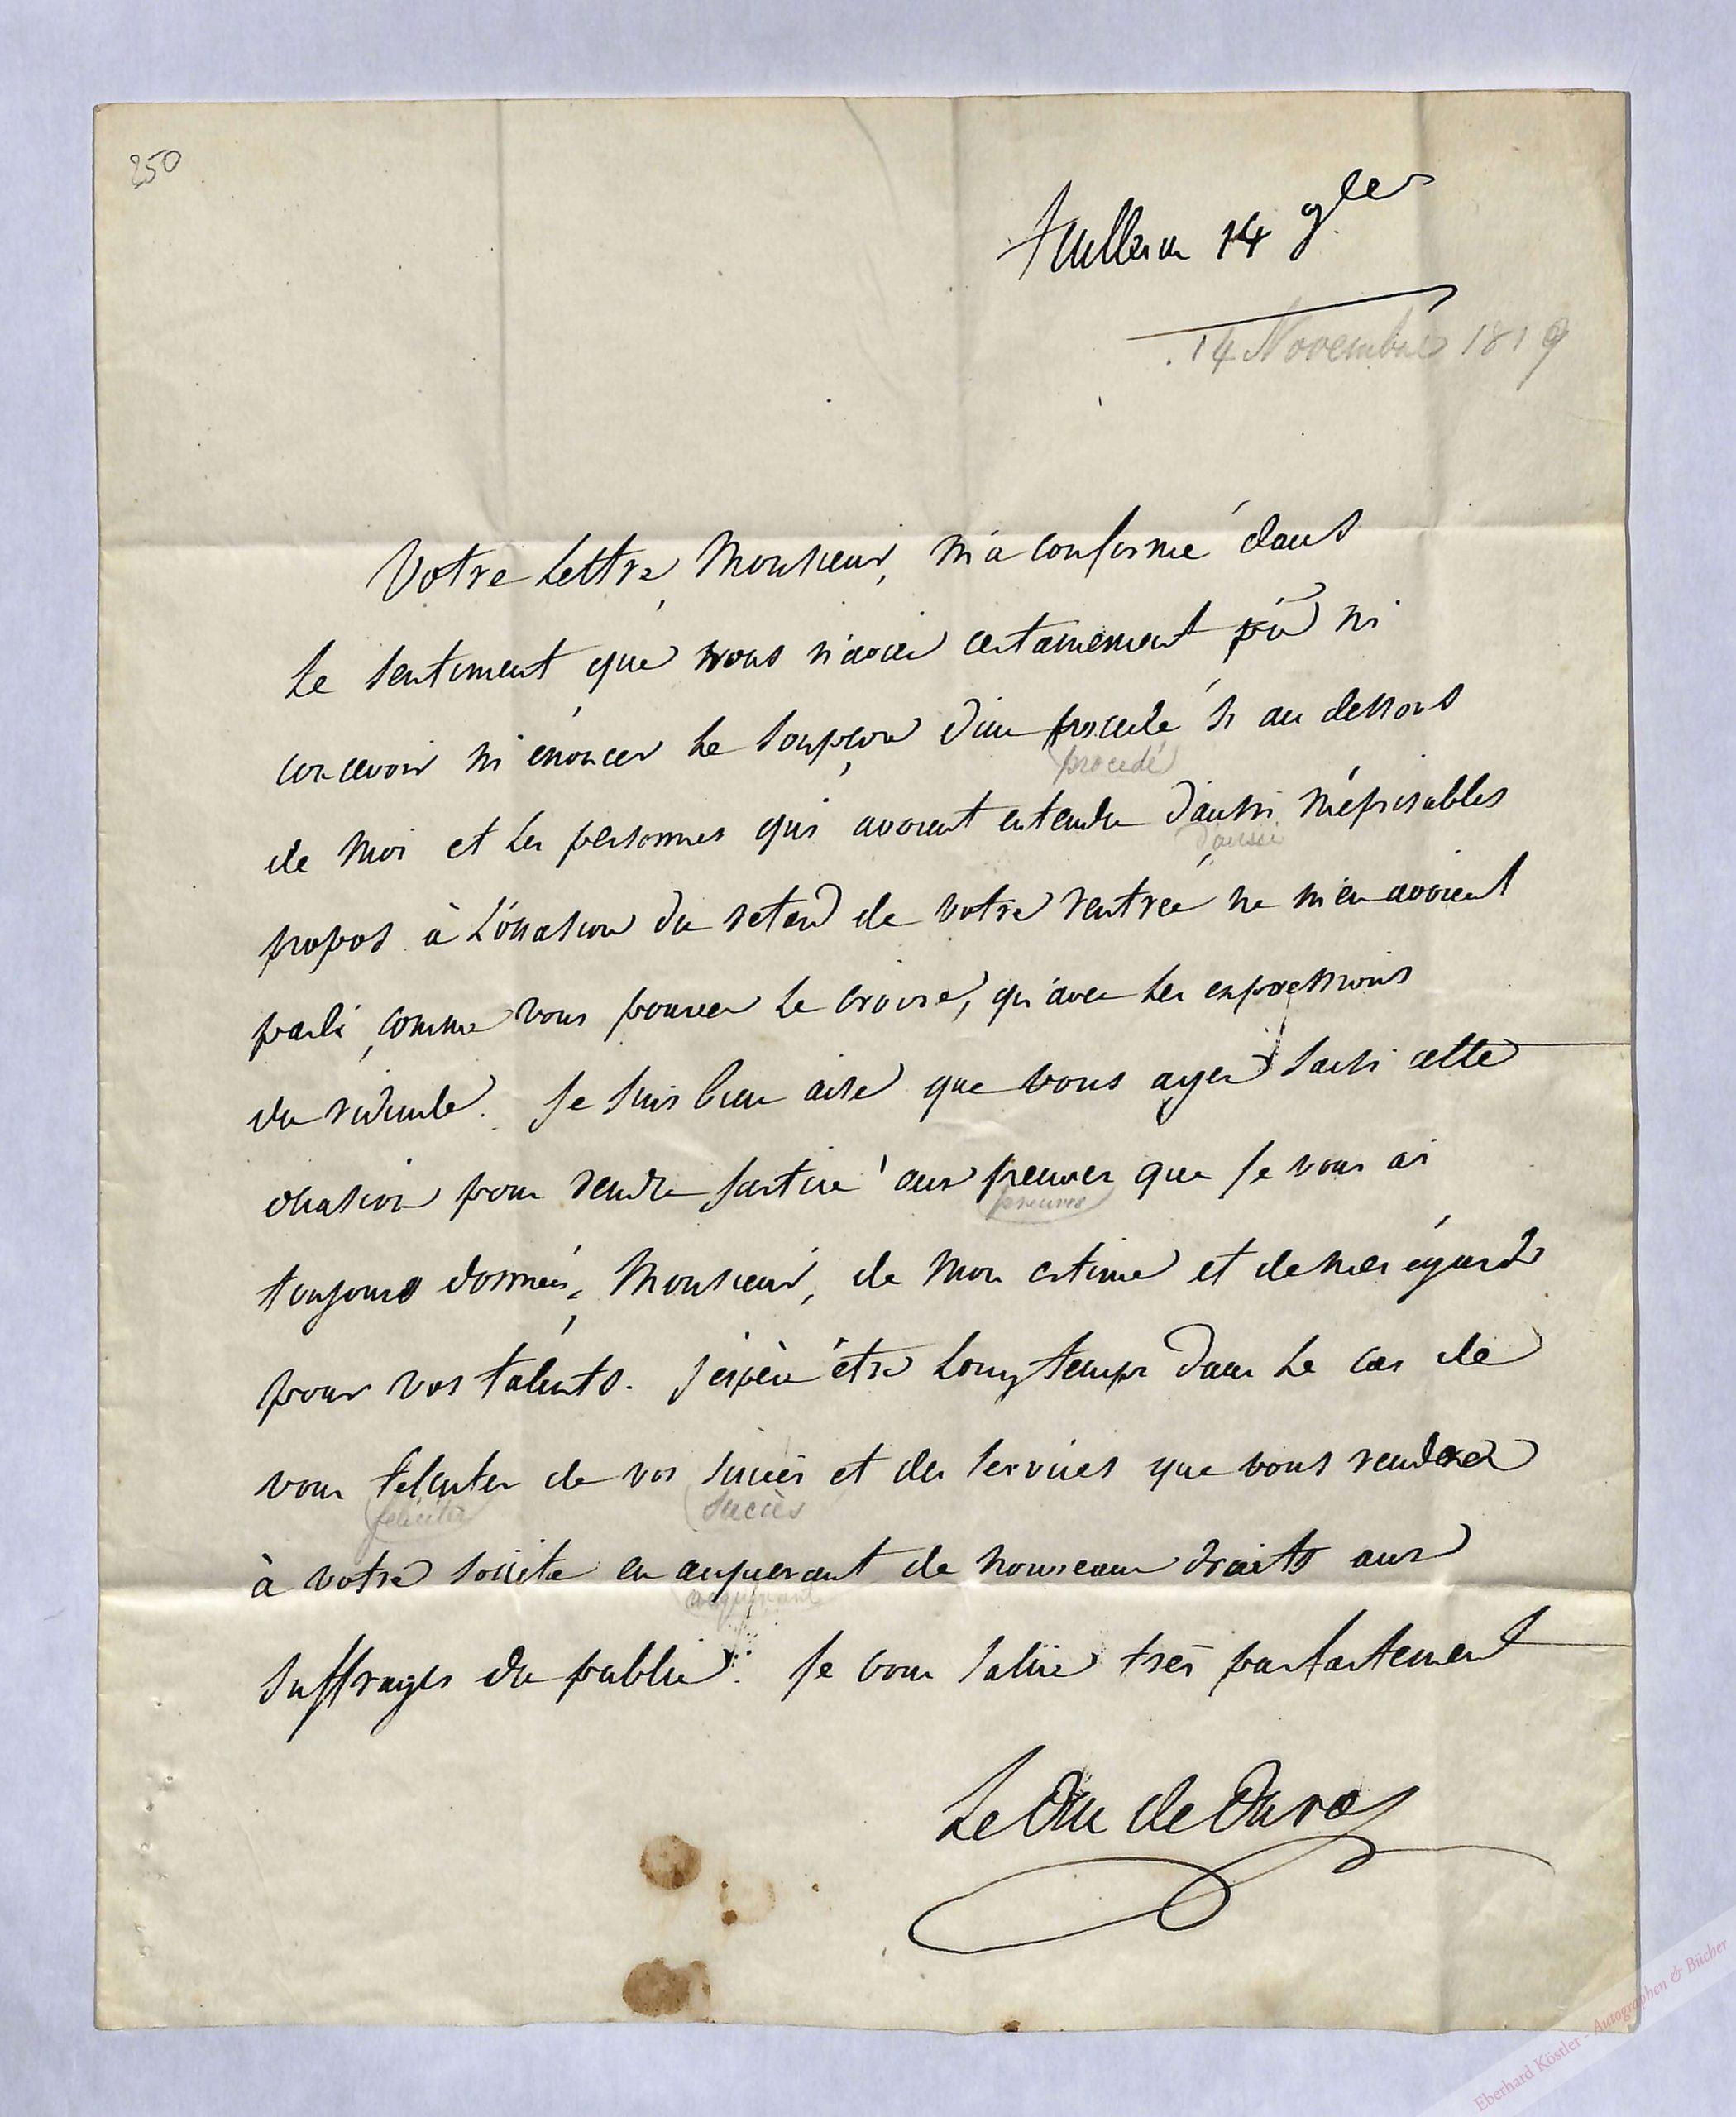 250
Tuilleries 14 9bre
14 Novembre 1819
Votre Lettre, Monsieur, m'a confirmé dans
Le sentiment que vous n'aviez certainement pû ni
concevoir ni énoncer Le soupçon d'un procedé si au dessous
procedé
de moi et Les personnes qui avoient entendu d'aussi méprisables
d'aussi
propos à L'occasion du retard de votre rentrée ne m'en avoient
parlé, comme vous pouvez Le croire, qu'avec Les expressions
du ridicule. Je suis bien aise que vous ayez saisi cette
occasion pour rendre justice aux preuves que Je vous ai
preuves
toujours données, Monsieur, de mon estime et de mes égards
pour vos talents. J'espère être Longtemps dans Le cas de
vous feliciter de vos succès et des services que vous rendrez
feliciter succès
à votre societé en acquerant de nouveaux droits aux
acquerant
suffrages du public. Je vous salüe très parfaitement
Le Duc de Duras
Eberhard Köstler - Autographen & Bücher